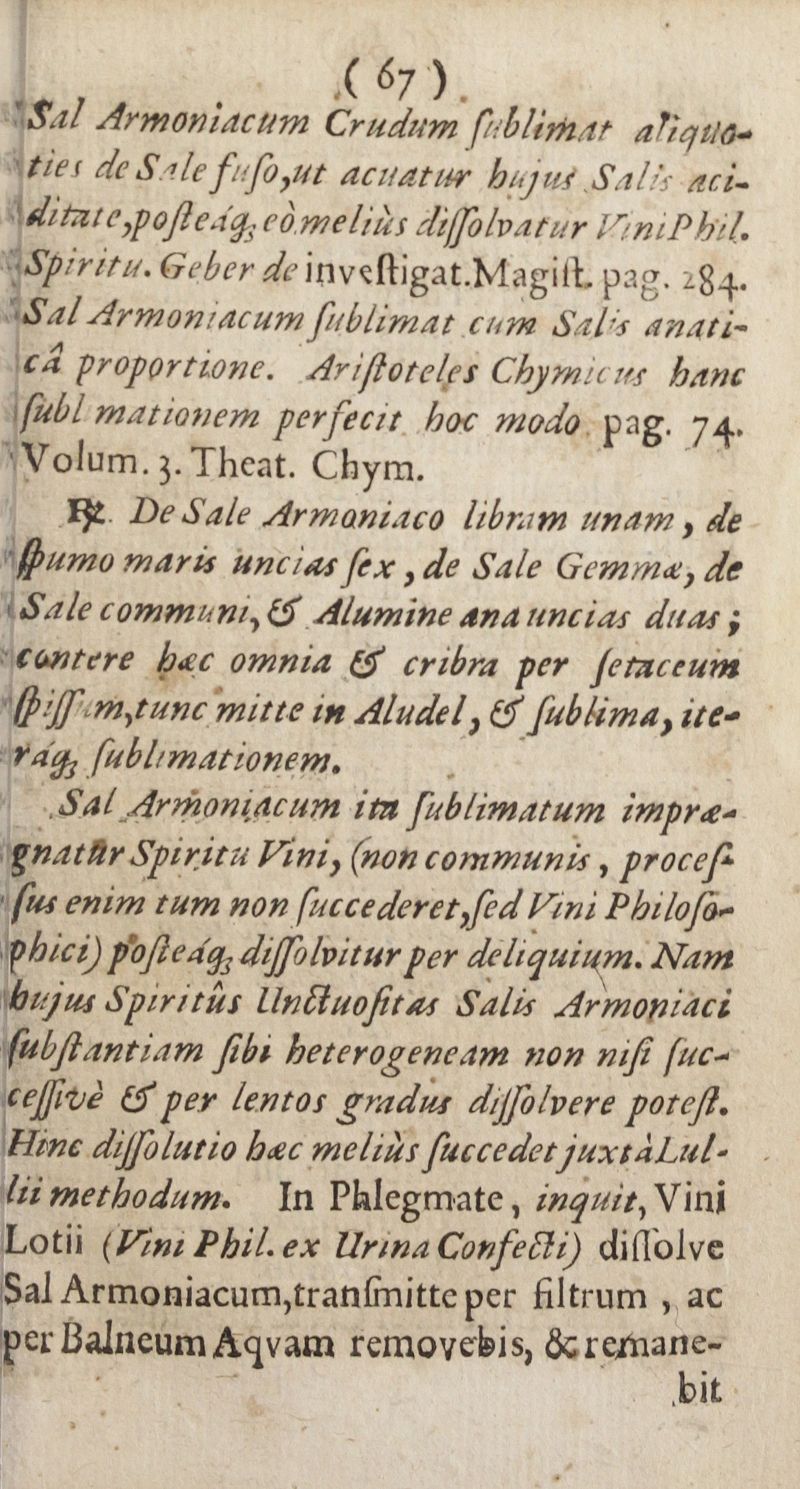 ( 67 ).
Sal Armoniacum Crudum ſublimat aliquo-
ties de Sale fuſo, ut acuatur hujus Salis aci-
ditate, poſteáq; eò melius diſſolvatur Vini Phil.
Spiritu. Geber de inveſtigat. Magiſt. pag. 284.
Sal Armoniacum ſublimat cum Salis anati-
câ proportione. Ariſtoteles Chymicus hanc
ſubl mationem perfecit hoc modo pag. 74.
Volum. 3. Theat. Chym.
℞. De Sale Armoniaco libram unam, de
ſpumo maris uncias ſex, de Sale Gemmæ, de
Sale communi, & Alumine ana uncias duas;
contere hæc omnia & cribra per ſetaceum
ſpiſſum, tunc mitte in Aludel, & ſublima, ite-
ráq; ſublimationem.
Sal Armoniacum ita ſublimatum impræ-
gnatur Spiritu Vini, (non communis, proceſ-
ſus enim tum non ſuccederet, ſed Vini Philoſo-
phici) poſteáq; diſſolvitur per deliquium. Nam
hujus Spiritûs Unctuoſitas Salis Armoniaci
ſubſtantiam ſibi heterogeneam non niſi ſuc-
ceſſivè & per lentos gradus diſſolvere poteſt.
Hinc diſſolutio hæc meliùs ſuccedet juxtà Lul-
lii methodum. In Phlegmate, inquit, Vini
Lotii (Vini Phil. ex Urina Confecti) diſſolve
Sal Armoniacum, tranſmitte per filtrum, ac
per Balneum Aqvam removebis, & remane-
bit